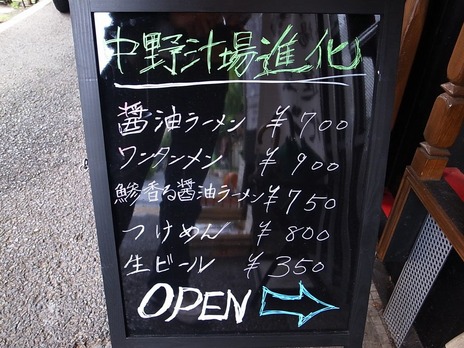 中野汁場進化
醤油ラーメン ¥700
ワンタンメン ¥900
鯵香る醤油ラーメン¥750
つけめん ¥800
生ビール ¥350
OPEN